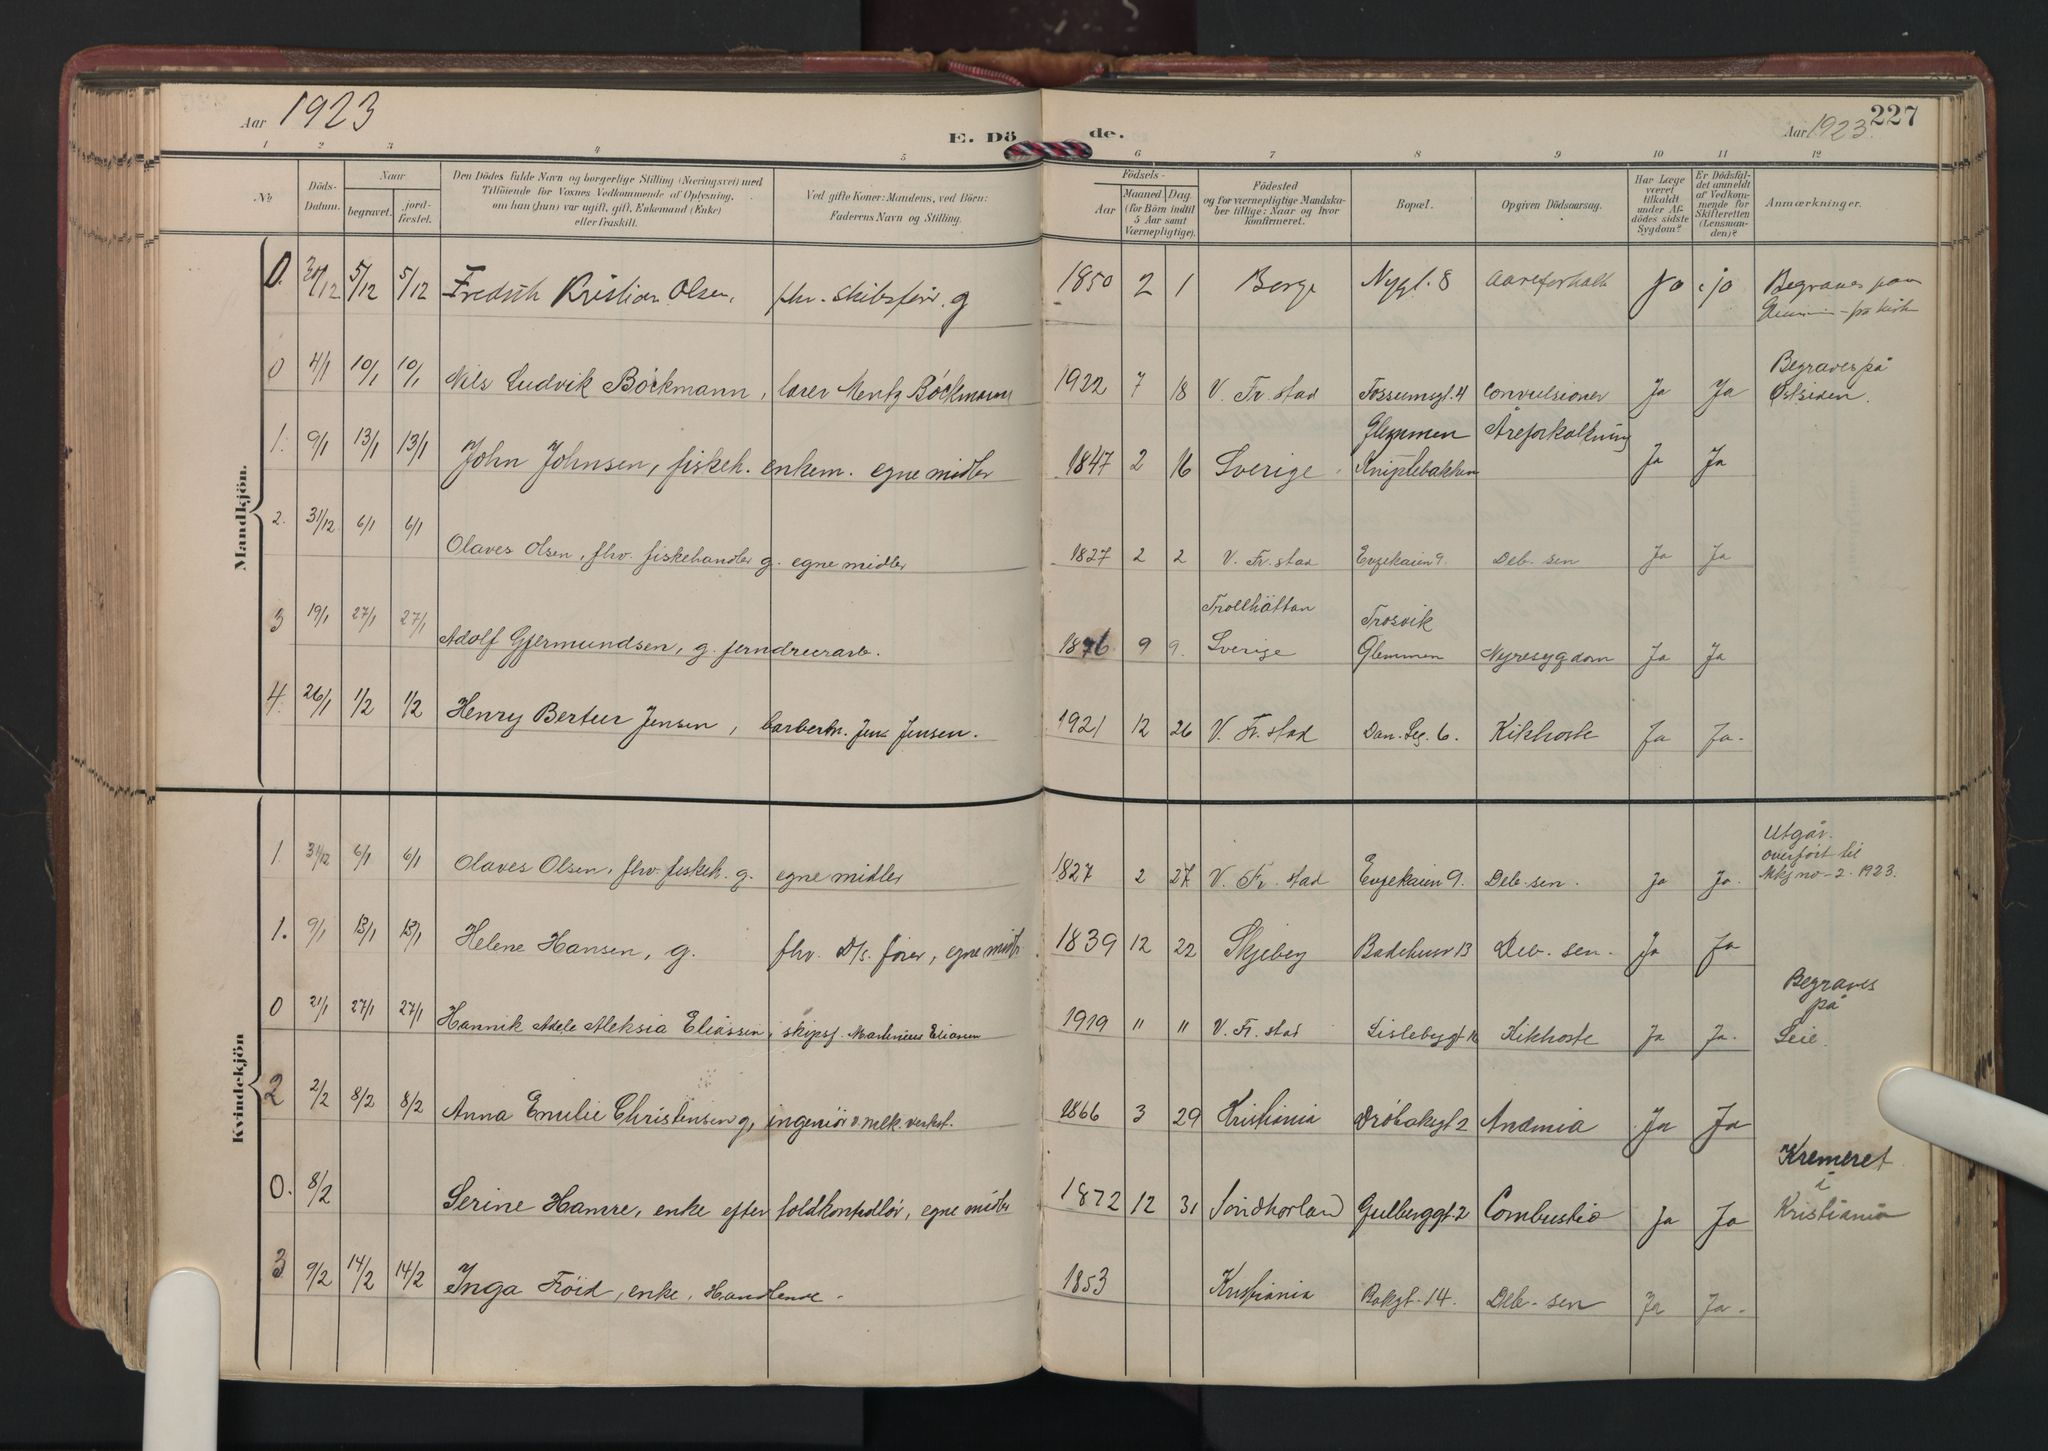 Aar 1923
E. Dö de.
Aar 1923. 227
1 2 3 4 5 6 7 8 9 10 11 12
No
Döds-Datum.
Naar
begravet.
jordfæstet.
Den Dödes fulde Navn og borgerlige Stilling (Næringsvei) med
Tilföiende for Voxnes Vedkommende af Oplysning,
om han (hun) var ugift, gift, Enkemand (Enke)
eller fraskilt.
Ved gifte Koner: Mandens, ved Börn:
Faderens Navn og Stilling.
Födsels-
Aar
Maaned Dag
(for Börn indtil
5 Aar samt
Værnepligtige).
Födested
og for værnepligtige Mandska-
ber tillige: Naar og hvor
konfirmeret.
Bopæl.
Opgiven Dödsaarsag.
Har Læge
været
tilkaldt
under Af-
dödes sidste
Sygdom?
Er Dödsfal-
det anmeldt
af Vedkom-
mende for
Skifteretten
(Lensman-
den)?
Anmærkninger.
Mandkjön.
0. 5/12 5/12 Fredrik Kristian Olsen, fhv. skibsför. g 1850 2 1 Borge Nygt. 8 Aareforkalk ja ja Begraves paa
0 4/1 10/1 10/1 Nils Ludvik Böckmann, lærer Mentz Böckmann 1922 7 18 V. Fr. stad Fossumsgt. 4 Convulsioner Ja Ja Begraves på Østsiden.
1. 9/1 13/1 13/1 John Johnsen, fiskeh. enkem. egne midler 1847 2 16 Sverige. Glemmen Kniplebakken Åreforkalkning Ja Ja
2. 31/12 6/1 6/1 Olaves Olsen, fhv. fiskehandler g. egne midler 1827 2 2 V. Fr. stad Evjekaien 9. Deb. sen Ja Ja
3 19/1 27/1 27/1 Adolf Gjermundsen, g. 1876 9 9. Trollhättan Sverige Trosvik Glemmen Nyresygdom Ja Ja
4. 26/1 1/2 1/2 Henry Bertur Jensen, barberm. Jens Jensen. 1921 12 26 V. Fr. stad Dam. Kikhoste Ja Ja.
Kvindekjön
1. 31/12 6/1 6/1 Olaves Olsen, fhv. fiskeh. g. egne midler 1827 2 27 V. Fr. stad Evjekaien 9. Deb. sen. Ja Ja. Utgår. overført til Mkj no-2. 1923.
1. 9/1 13/1 13/1 Helene Hansen, g. fhv. D/s. fører, egne midl. 1839 12 22 Skjeberg Badehusgt 13 Deb. sen. Ja Ja
0 21/1 27/1 27/1 Hannik Adele Aleksia Eliassen, skipsf. Martinius Eliassen 1919 " " V. Fr. stad Lislebygt Kikhoste Ja Ja. Begraves på Leie.
2 2/2 8/2 8/2 Anna Emilie Christensen g, ingeniör v. mek. verkst. 1866 3 29 Kristiania Dröbakgt 2 Anämia Ja Ja
0. 8/2 Serine Hamre, enke efter toldkontrollör, egne midler 1872 12 31 Söndhorland Gulberggt. 2 Combustio Ja Ja Kremeret i Kristiania
3 9/2 14/2 14/2 Inga Fröid, enke, Handlende. 1853 Kristiania Bakgt. 14. Deb. sen Ja Ja.